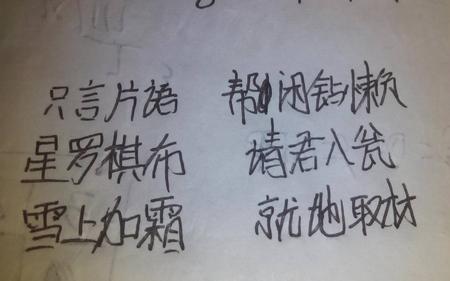 只言片语 帮闲钻懒
星罗棋布 请君入瓮
雪上加霜 就地取材